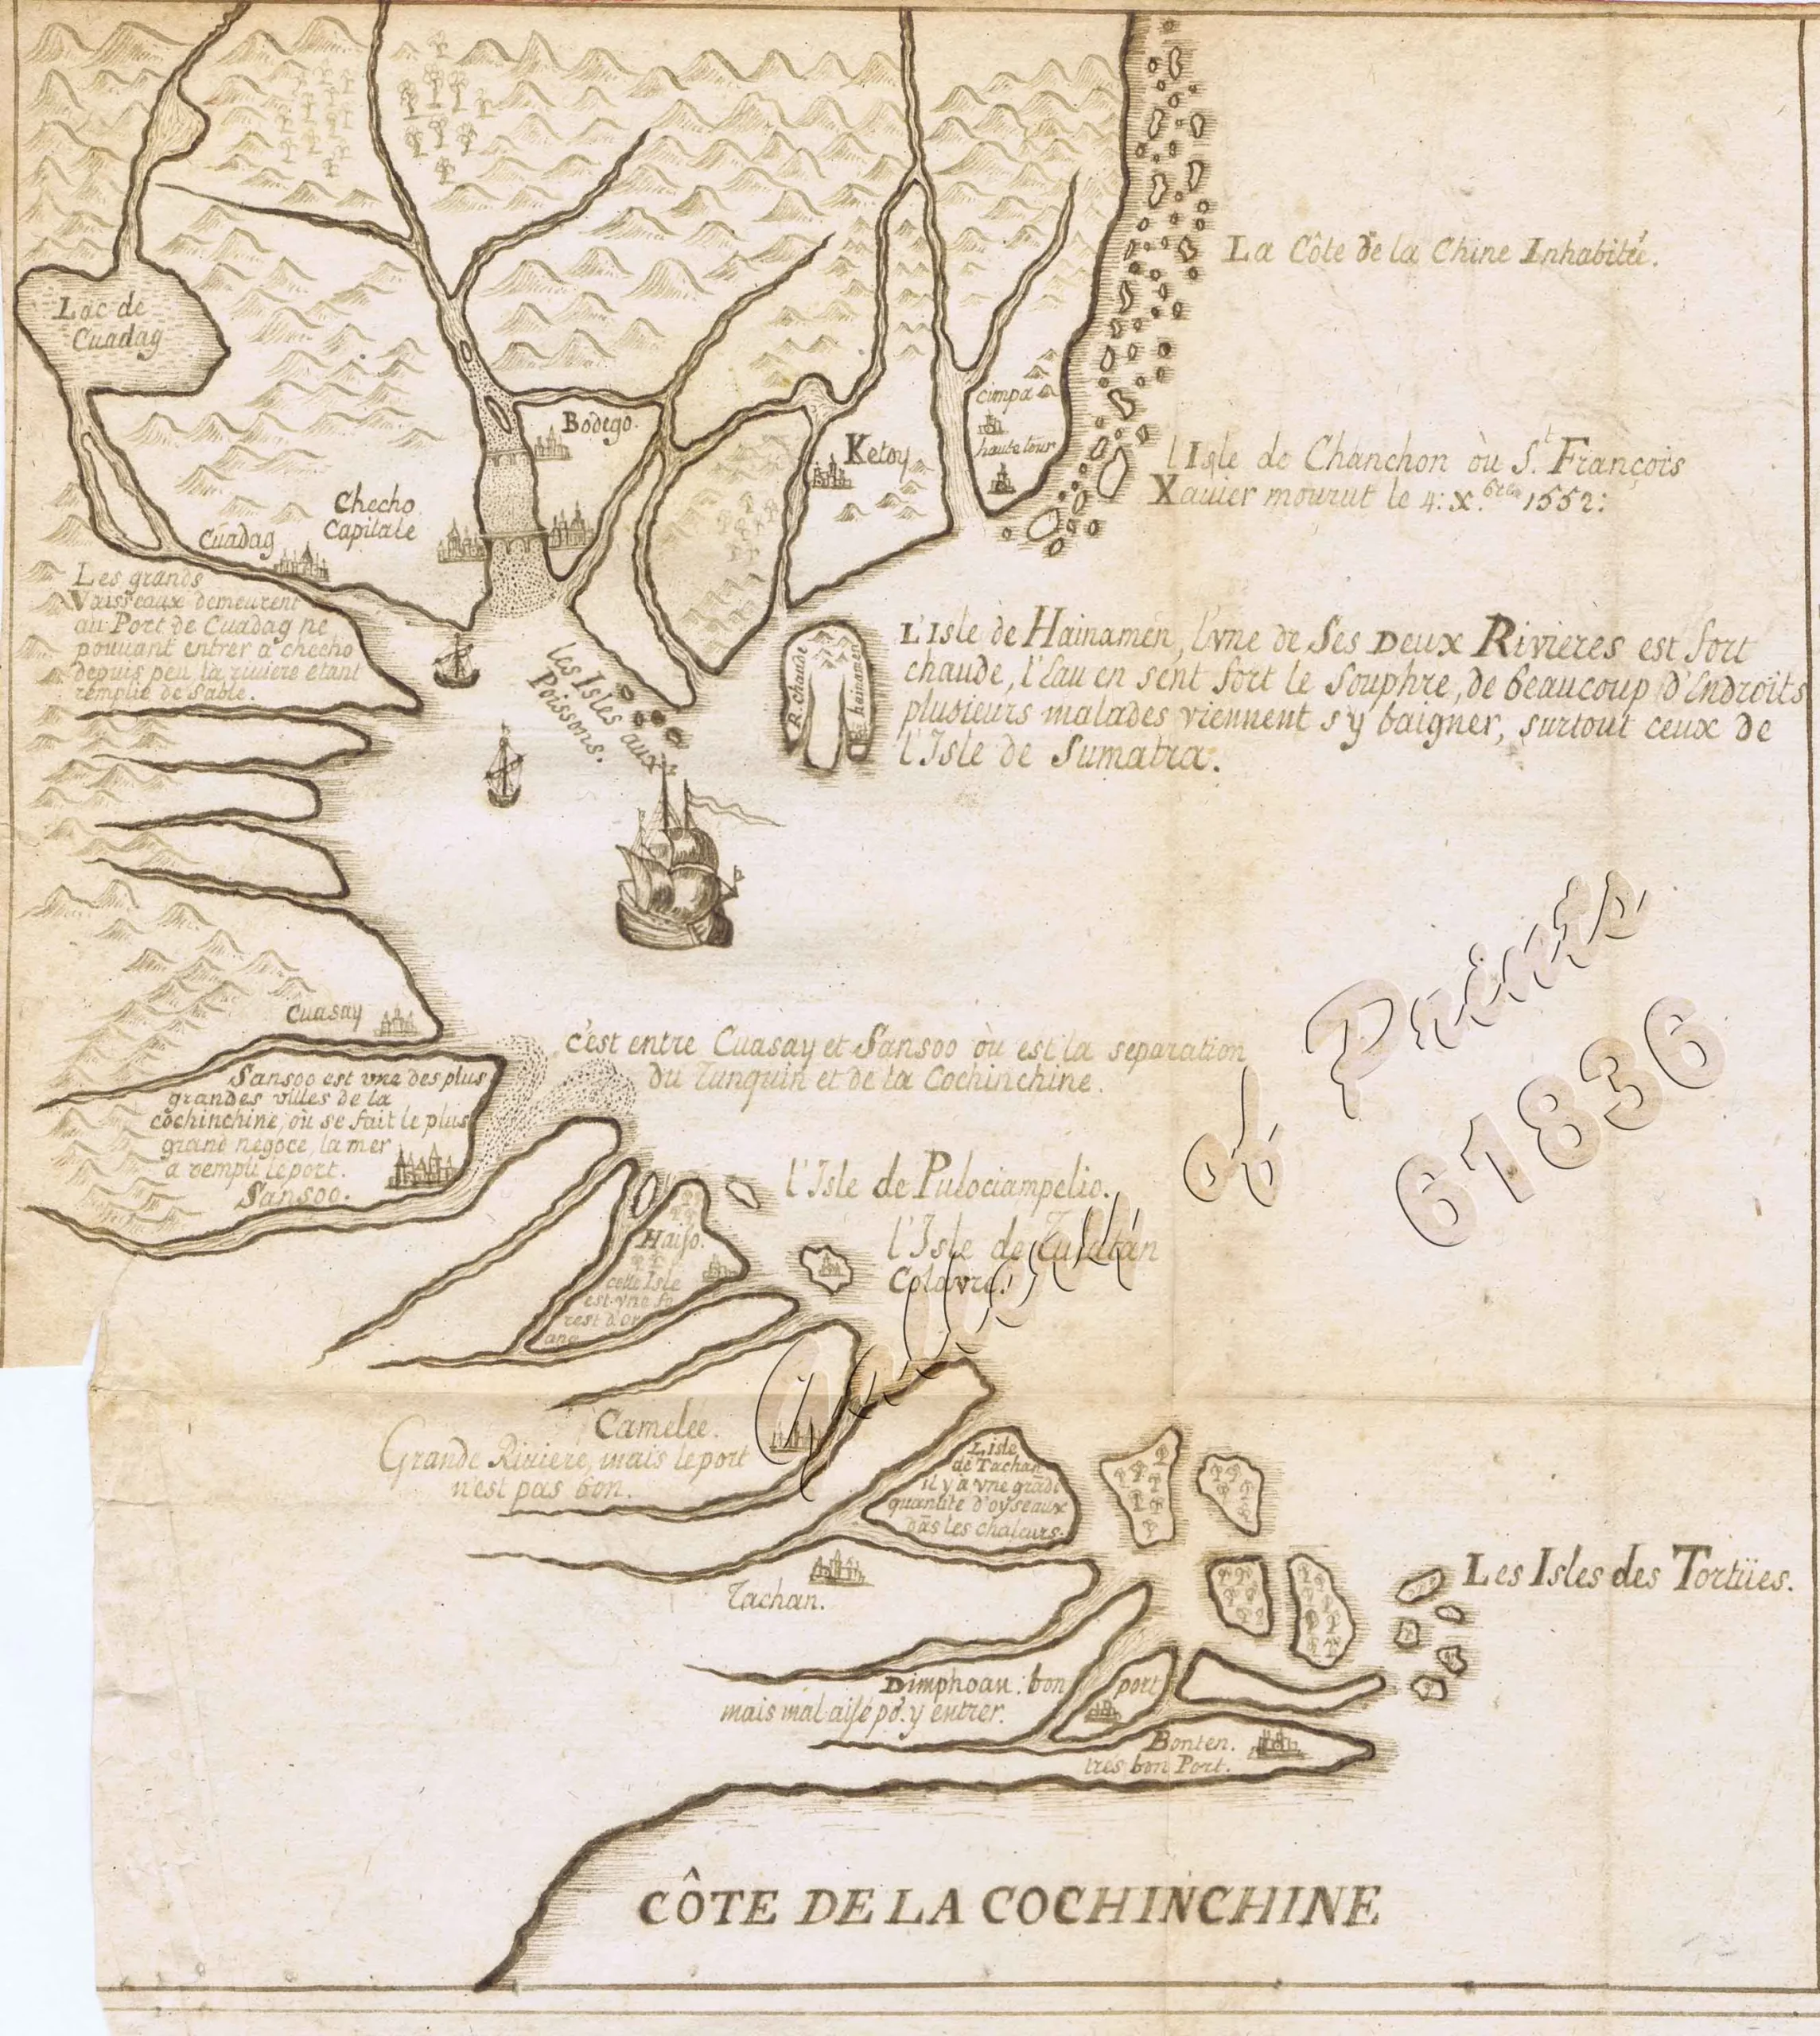 La Côte de la Chine Inhabitée.
Lac de
Cuadag
cimpa
haute tour
Bodego.
Ketoy
l'Isle de Chanchon où St. François
Xavier mourut le 4: x.bre 1552:
Checho
Capitale
Cuadag
Les grands
Vaisseaux demeurent
au Port de Cuadag ne
pouvant entrer a checho
depuis peu la riviere etant
remplie de Sable.
les Isles aux
Poissons.
R. chaude
R. hainamen
L'Isle de Hainamen, l'vne de Ses Deux Rivieres est fort
chaude, l'Eau en sent fort le Souphre, de beaucoup d'Endroits
plusieurs malades viennent s'y baigner, surtout ceux de
l'Isle de Sumatra.
Cuasay
c'est entre Cuasay et Sansoo où est la separation
du Tunquin et de la Cochinchine.
Sansoo est vne des plus
grandes villes de la
cochinchine, où se fait le plus
grand negoce, la mer
a rempli le port.
Sansoo.
l'Isle de Pulociampelio.
l'Isle de
Haiso.
cette Isle
est vne fo
rest d'or
ang
Camelee.
Grande Riviere, mais le port
n'est pas bon.
L'isle
de Tachan
il y a vne grãde
quantité d'oyseaux
dãs les chaleurs.
Tachan.
Les Isles des Tortües.
Dimphoan: bon port
mais mal aisé po.r y entrer.
Bonten.
tres bon Port.
CÔTE DE LA COCHINCHINE
Gallery of Prints
61836